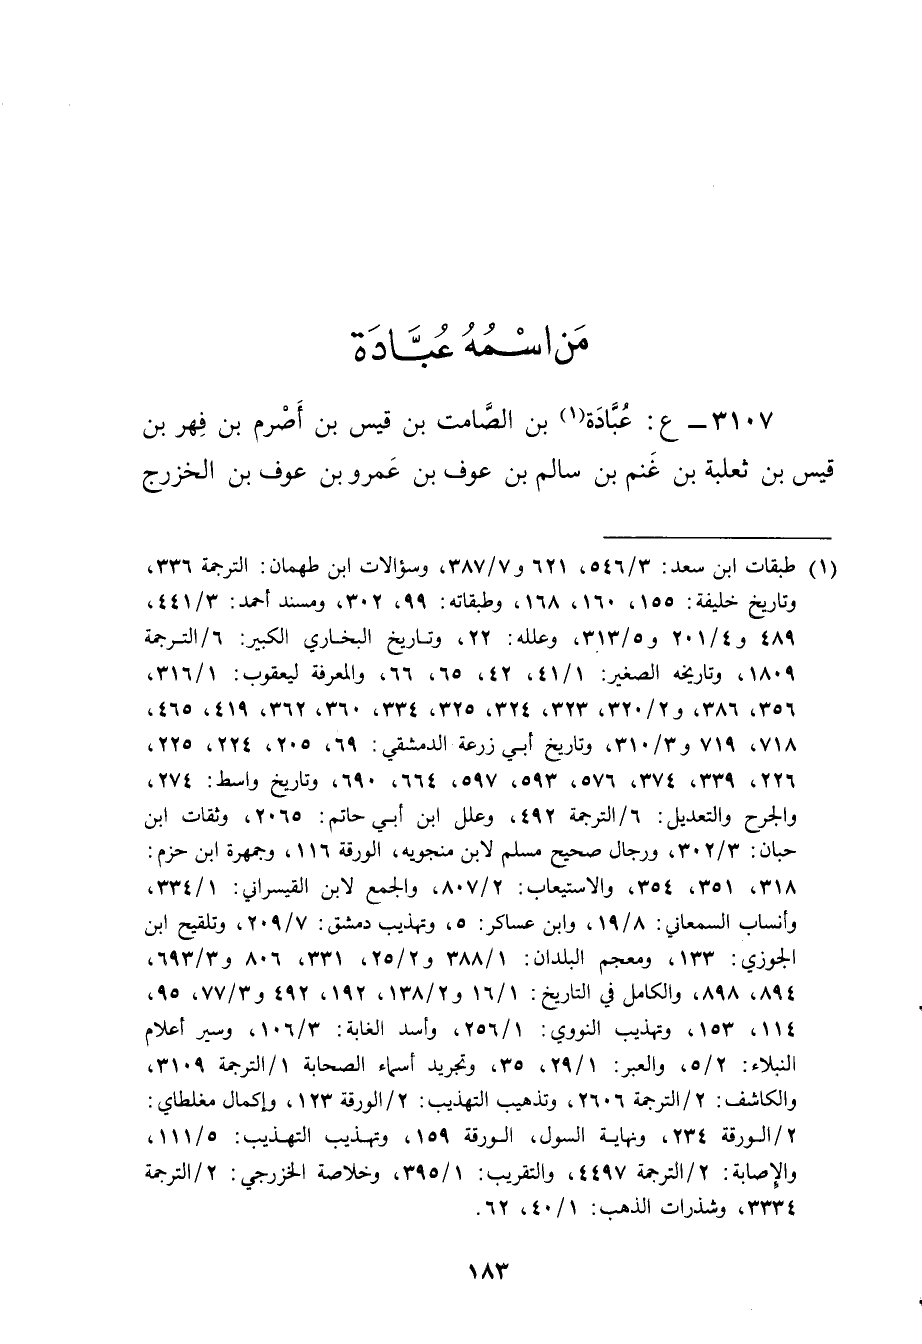 مَن اسْمُهُ عُبَّادَة
٣١٠٧ــ ع: عُبَّادَة(١) بن الصَّامت بن قيس بن أَصْرم بن فِهر بن
قيس بن ثعلبة بن غَنم بن سالم بن عوف بن عَمرو بن عوف بن الخزرج
(١) طبقات ابن سعد: ٥٤٦/٣، ٦٢١ و٣٨٧/٧، وسؤالات ابن طهمان: الترجمة ٣٣٦،
وتاريخ خليفة: ١٥٥، ١٦٠، ١٦٨، وطبقاته: ٩٩، ٣٠٢، ومسند أحمد: ٤٤١/٣،
٤٨٩ و٢٠١/٤ و٣١٣/٥، وعلله: ٢٢، وتاريخ البخاري الكبير: ٦/الترجمة
١٨٠٩، وتاريخه الصغير: ٤١/١، ٤٢، ٦٥، ٦٦، والمعرفة ليعقوب: ٣١٦/١،
٣٥٦، ٣٨٦، و٣٢٠/٢، ٣٢٣، ٣٢٤، ٣٢٥، ٣٣٤، ٣٦٠، ٣٦٢، ٤١٩، ٤٦٥،
٧١٨، ٧١٩ و٣١٠/٣، وتاريخ أبي زرعة الدمشقي: ٦٩، ٢٠٥، ٢٢٤، ٢٢٥،
٢٢٦، ٣٣٩، ٣٧٤، ٥٧٦، ٥٩٣، ٥٩٧، ٦٦٤، ٦٩٠، وتاريخ واسط: ٢٧٤،
والجرح والتعديل: ٦/الترجمة ٤٩٢، وعلل ابن أبي حاتم: ٢٠٦٥، وثقات ابن
حبان: ٣٠٢/٣، ورجال صحيح مسلم لابن منجويه، الورقة ١١٦، وجمهرة ابن حزم:
٣١٨، ٣٥١، ٣٥٤، والاستيعاب: ٨٠٧/٢، والجمع لابن القيسراني: ٣٣٤/١،
وأنساب السمعاني: ١٩/٨، وابن عساكر: ٥، وتهذيب دمشق: ٢٠٩/٧، وتلقيح ابن
الجوزي: ١٣٣، ومعجم البلدان: ٣٨٨/١ و٢٥/٢، ٣٣١، ٨٠٦ و٦٩٣/٣،
٨٩٤، ٨٩٨، والكامل في التاريخ: ١٦/١ و١٣٨/٢، ١٩٢، ٤٩٢ و٧٧/٣، ٩٥،
١١٤، ١٥٣، وتهذيب النووي: ٢٥٦/١، وأسد الغابة: ١٠٦/٣، وسير أعلام
النبلاء: ٥/٢، والعبر: ٢٩/١، ٣٥، وتجريد أسماء الصحابة ١/الترجمة ٣١٠٩،
والكاشف: ٢/الترجمة ٢٦٠٦، وتذهيب التهذيب: ٢/الورقة ١٢٣، وإكمال مغلطاي:
٢/الورقة ٢٣٤، ونهاية السول، الورقة ١٥٩، وتهذيب التهذيب: ١١١/٥،
والإصابة: ٢/الترجمة ٤٤٩٧، والتقريب: ٣٩٥/١، وخلاصة الخزرجي: ٢/الترجمة
٣٣٣٤، وشذرات الذهب: ٤٠/١، ٦٢.
١٨٣